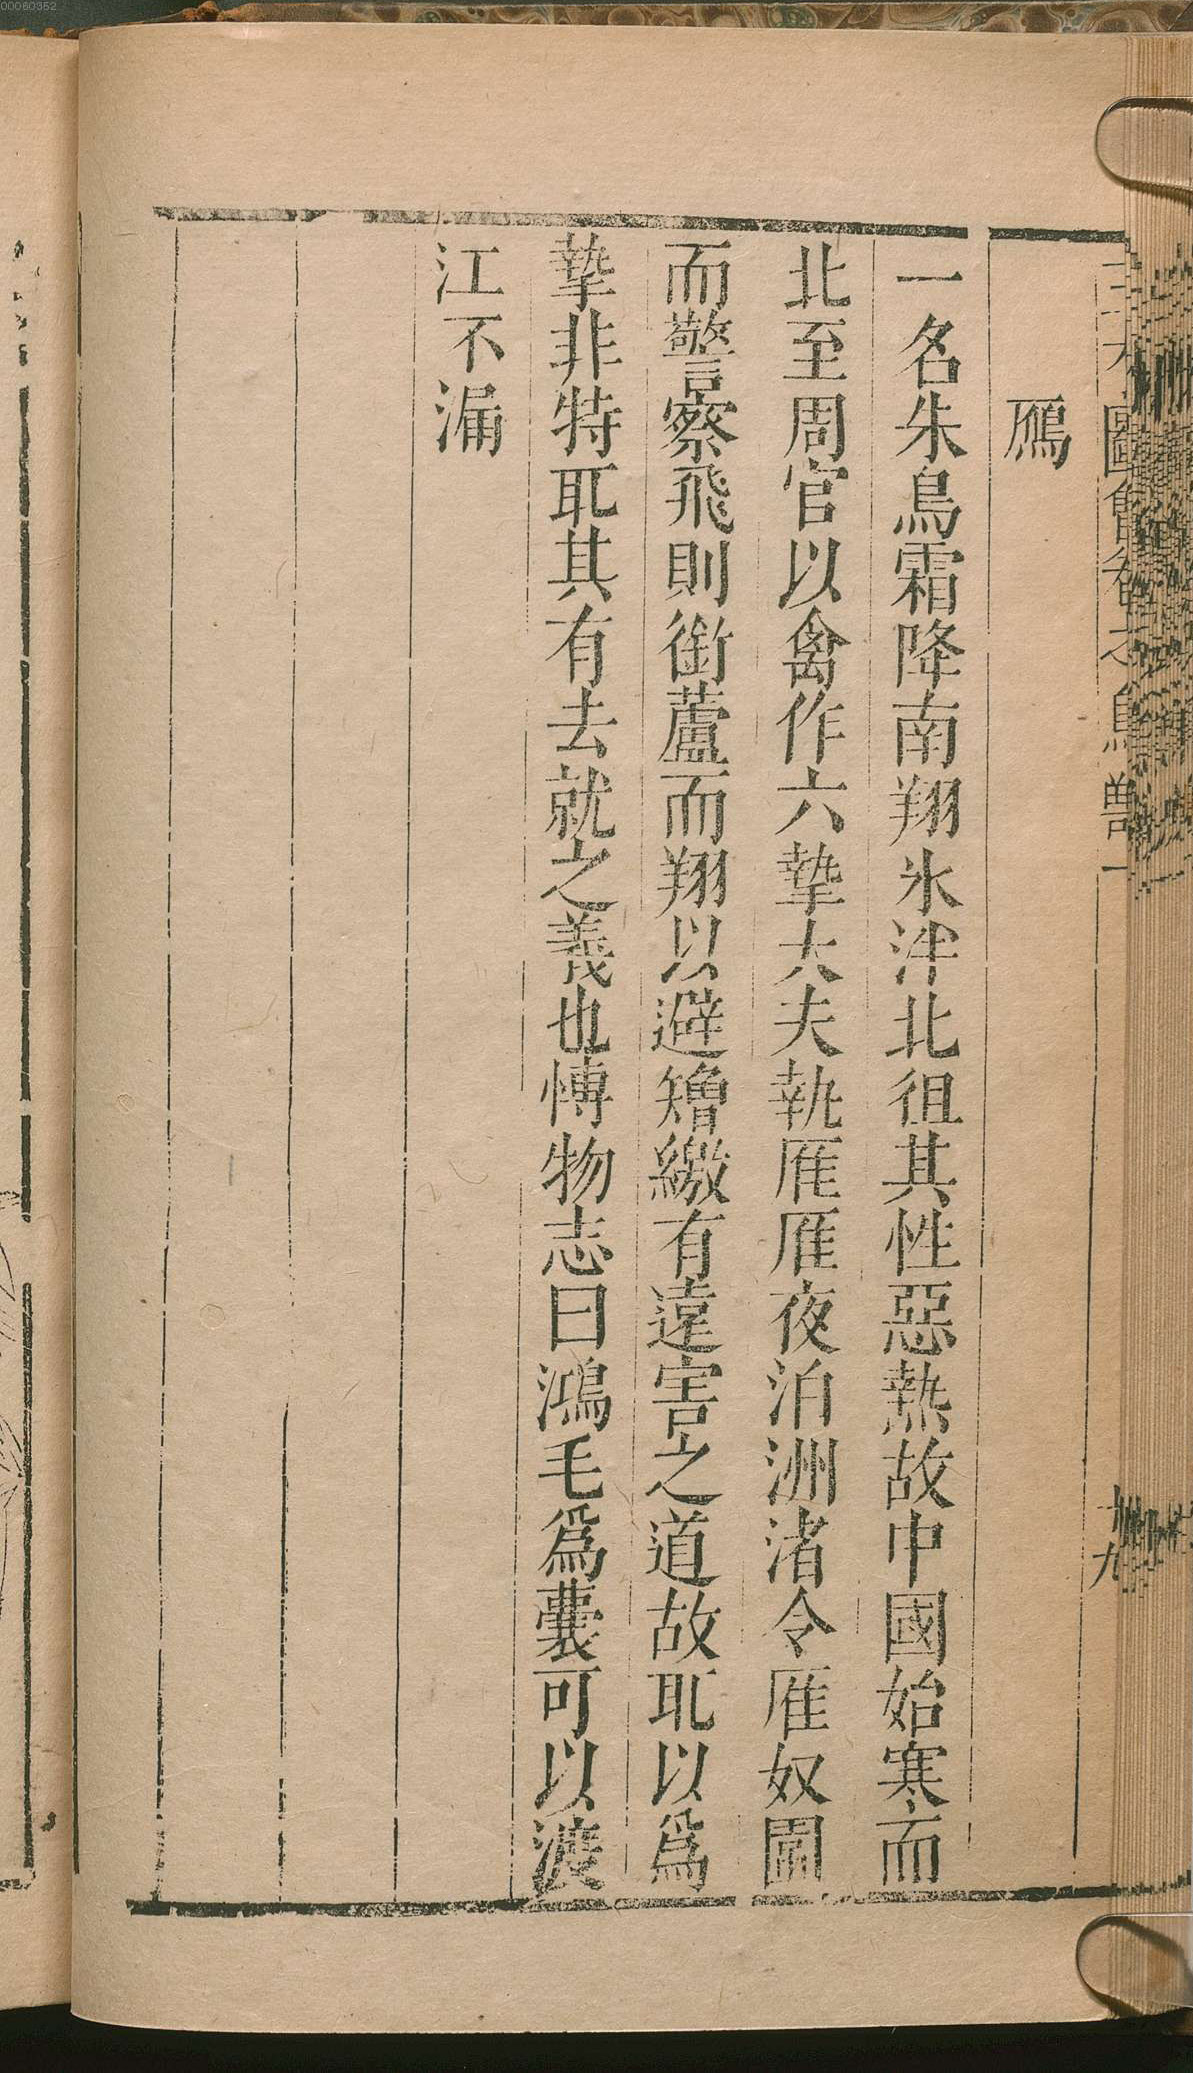 00060352
鴈
一名朱鳥霜降南翔氷泮北徂其性惡熱故中國始寒而
北至周官以禽作六摯大夫執雁雁夜泊洲渚令雁奴圍
而警察飛則銜蘆而翔以避矰繳有遠害之道故耴以爲
摯非特耴其有去就之義也愽物志曰鴻毛爲囊可以渡
江不漏